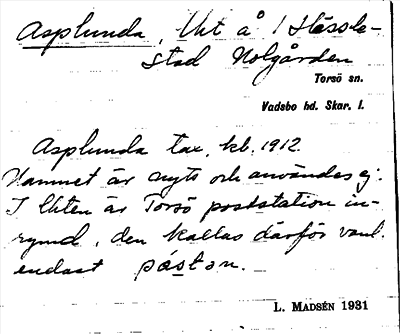 Asplunda, Uht å 1 Hässle-
stad Nolgården
Torsö sn.
Vadsbo hd. Skar. l.
Asplunda tax. kb. 1912.
Namnet är nytt och användes ej.
I lhten är Torsö poststation in-
rymd, den kallas därför vanl.
endast pástan.
L. MADSÉN 1931